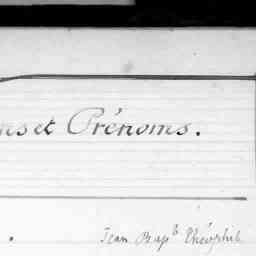 ns et Prénoms.
Jean Bapᵗ Théophile